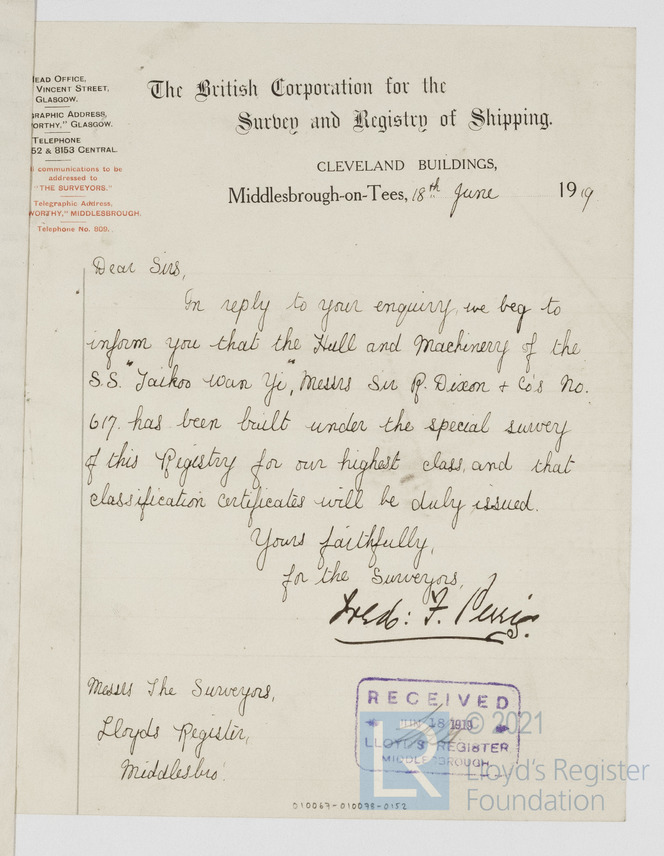 HEAD OFFICE,
VINCENT STREET,
GLASGOW.
GRAPHIC ADDRESS,
ORTHY," GLASGOW.
TELEPHONE
52 & 8153 CENTRAL.
communications to be
addressed to
"THE SURVEYORS."
Telegraphic Address,
WORTHY," MIDDLESBROUGH.
Telephone No. 809.
The British Corporation for the
Survey and Registry of Shipping.
CLEVELAND BUILDINGS,
Middlesbrough-on-Tees, 18th June 1919
Dear Sirs,
In reply to your enquiry, we beg to
inform you that the Hull and Machinery of the
S.S. "Taikoo Wan Yi", Messrs Sir R. Dixon & Co's No.
617. has been built under the special survey
of this Registry for our highest class, and that
classification certificates will be duly issued.
Yours faithfully,
for the Surveyors,
Fred: F.
Messrs The Surveyors,
Lloyds Register,
Middlesbro'.
RECEIVED
JUN 18 1919
LLOYD'S REGISTER
MIDDLESBROUGH
© 2021
Lloyd's Register
Foundation
LR
010067-010098-0152